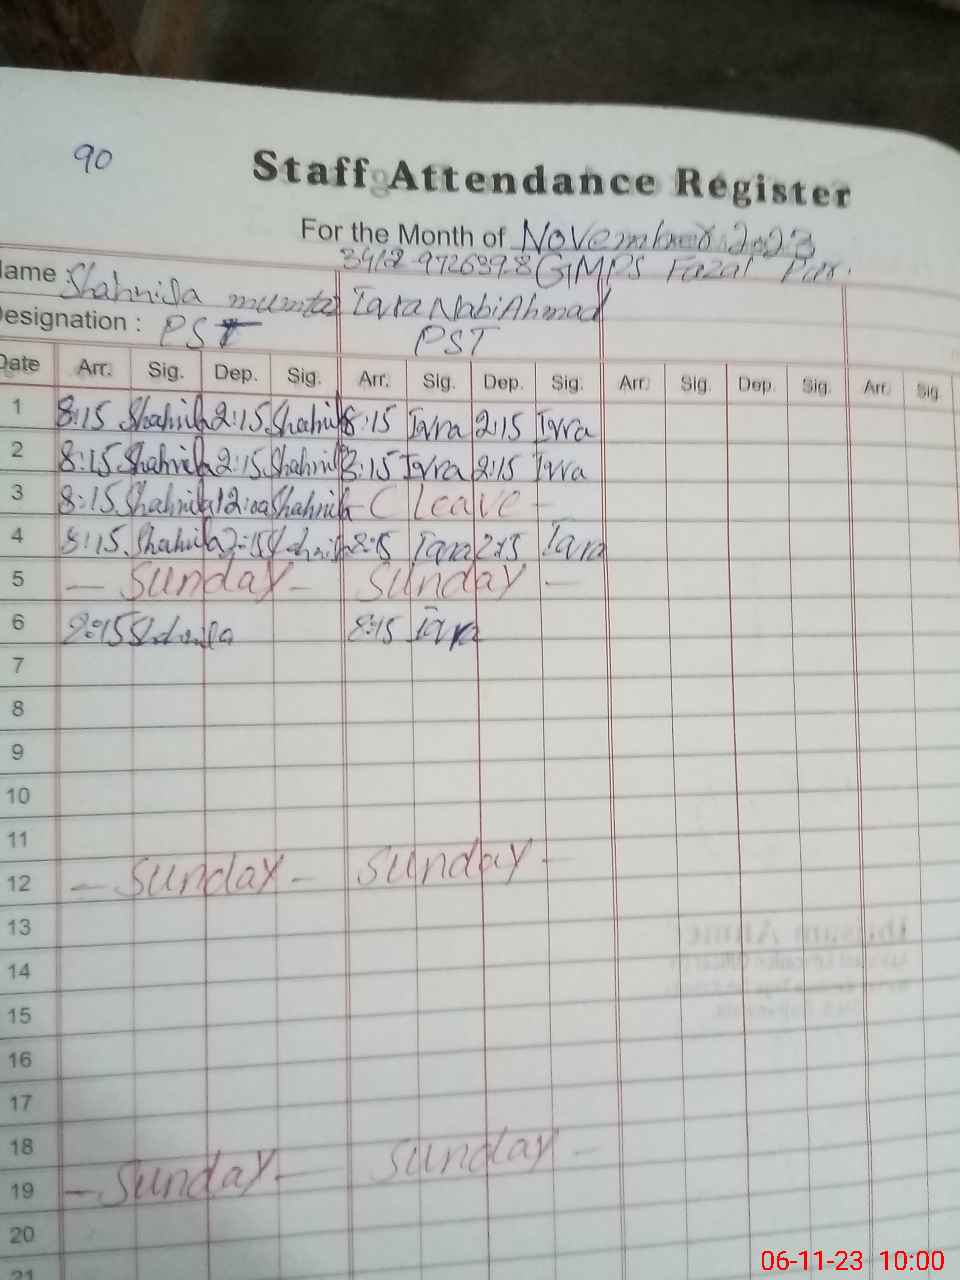 90
Staff Attendance Register
For the Month of November 2023
GMPS Fazal Pur.
Name Shahnila mumtaz Iqra Nabi Ahmad
Designation : PST PST
Date Arr. Sig. Dep. Sig. Arr. Sig. Dep. Sig. Arr. Sig. Dep. Sig. Arr. Sig.
1 8:15 Shahnila 2:15 Shahnila 8:15 Iqra 2:15 Iqra
2 8:15 Shahnila 2:15 Shahnila 8:15 Iqra 2:15 Iqra
3 8:15 Shahnila 12:00 Shahnila - C Leave -
4 8:15 Shahnila 2:15 Shahnila 8:15 Iqra 2:15 Iqra
5 - Sunday - Sunday -
6 8:15 Shahnila 8:15 Iqra
7
8
9
10
11
12 - Sunday - Sunday -
13
14
15
16
17
18
19 - Sunday - Sunday -
20
21
06-11-23 10:00